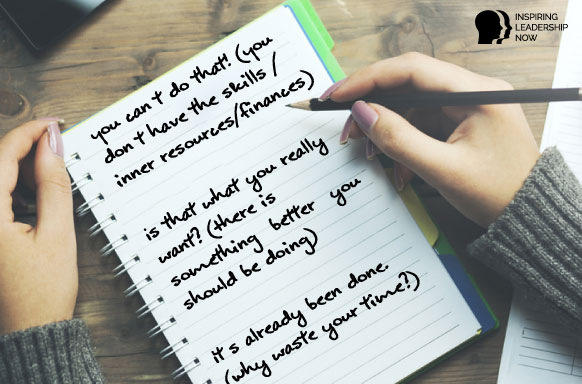 INSPIRING
LEADERSHIP
NOW
you can't do that! (you
don't have the skills /
inner resources/finances)
is that what you really
want? (there is
something better you
should be doing)
it s already been done.
(why waste your time?)